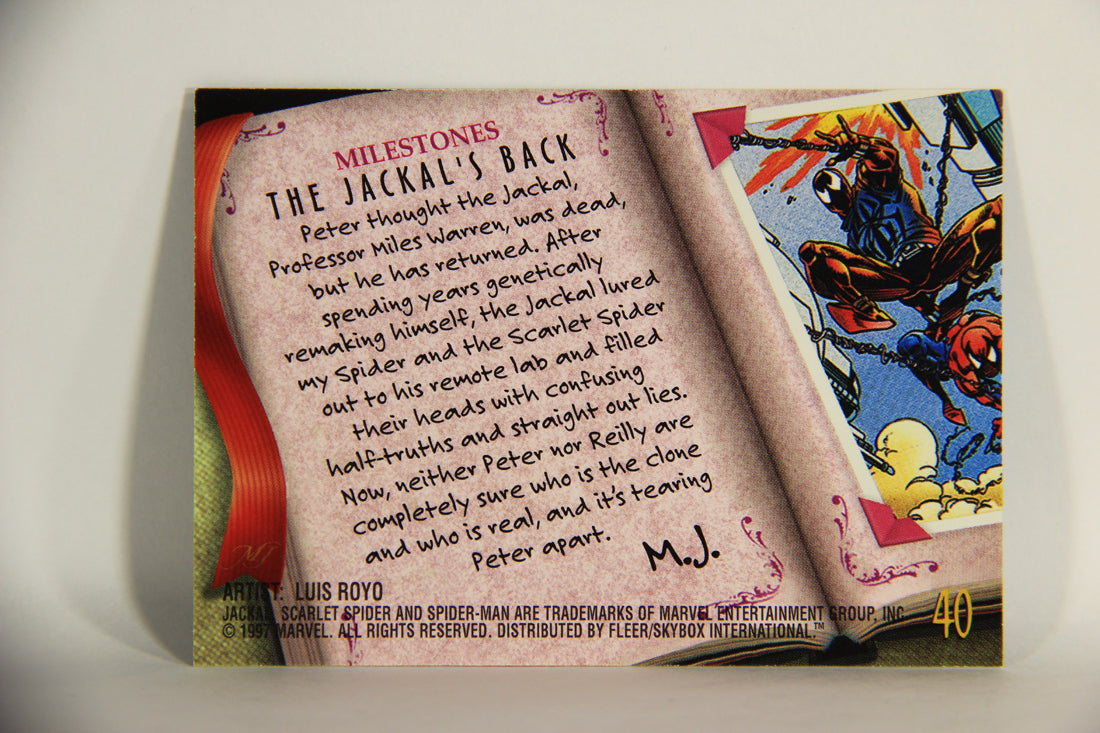 MILESTONES
THE JACKAL'S BACK
Peter thought the Jackal,
Professor Miles Warren, was dead,
but he has returned. After
spending years genetically
remaking himself, the Jackal lured
my Spider and the Scarlet Spider
out to his remote lab and filled
their heads with confusing
half-truths and straight out lies.
Now, neither Peter nor Reilly are
completely sure who is the clone
and who is real, and it's tearing
Peter apart.
M.J.
MJ
ARTIST: LUIS ROYO
JACKAL, SCARLET SPIDER AND SPIDER-MAN ARE TRADEMARKS OF MARVEL ENTERTAINMENT GROUP, INC.
© 1997 MARVEL. ALL RIGHTS RESERVED. DISTRIBUTED BY FLEER/SKYBOX INTERNATIONAL.™
40